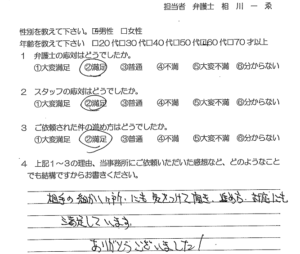 担当者 弁護士 相川一ゑ
性別を教えて下さい。 ☑男性 □女性
年齢を教えて下さい □20代□30代□40代□50代☑60代□70才以上
1 弁護士の応対はどうでしたか。
①大変満足 ②満足 ③普通 ④不満 ⑤大変不満 ⑥分からない
2 スタッフの応対はどうでしたか。
①大変満足 ②満足 ③普通 ④不満 ⑤大変不満 ⑥分からない
3 ご依頼された件の進め方はどうでしたか。
①大変満足 ②満足 ③普通 ④不満 ⑤大変不満 ⑥分からない
4 上記1～3の理由、当事務所にご依頼いただいた感想など、どのようなこと
でも結構ですからお書きください。
相手の細かい所にも気をつけて頂き、進め方、対応にも
満足しています。
ありがとうございました!